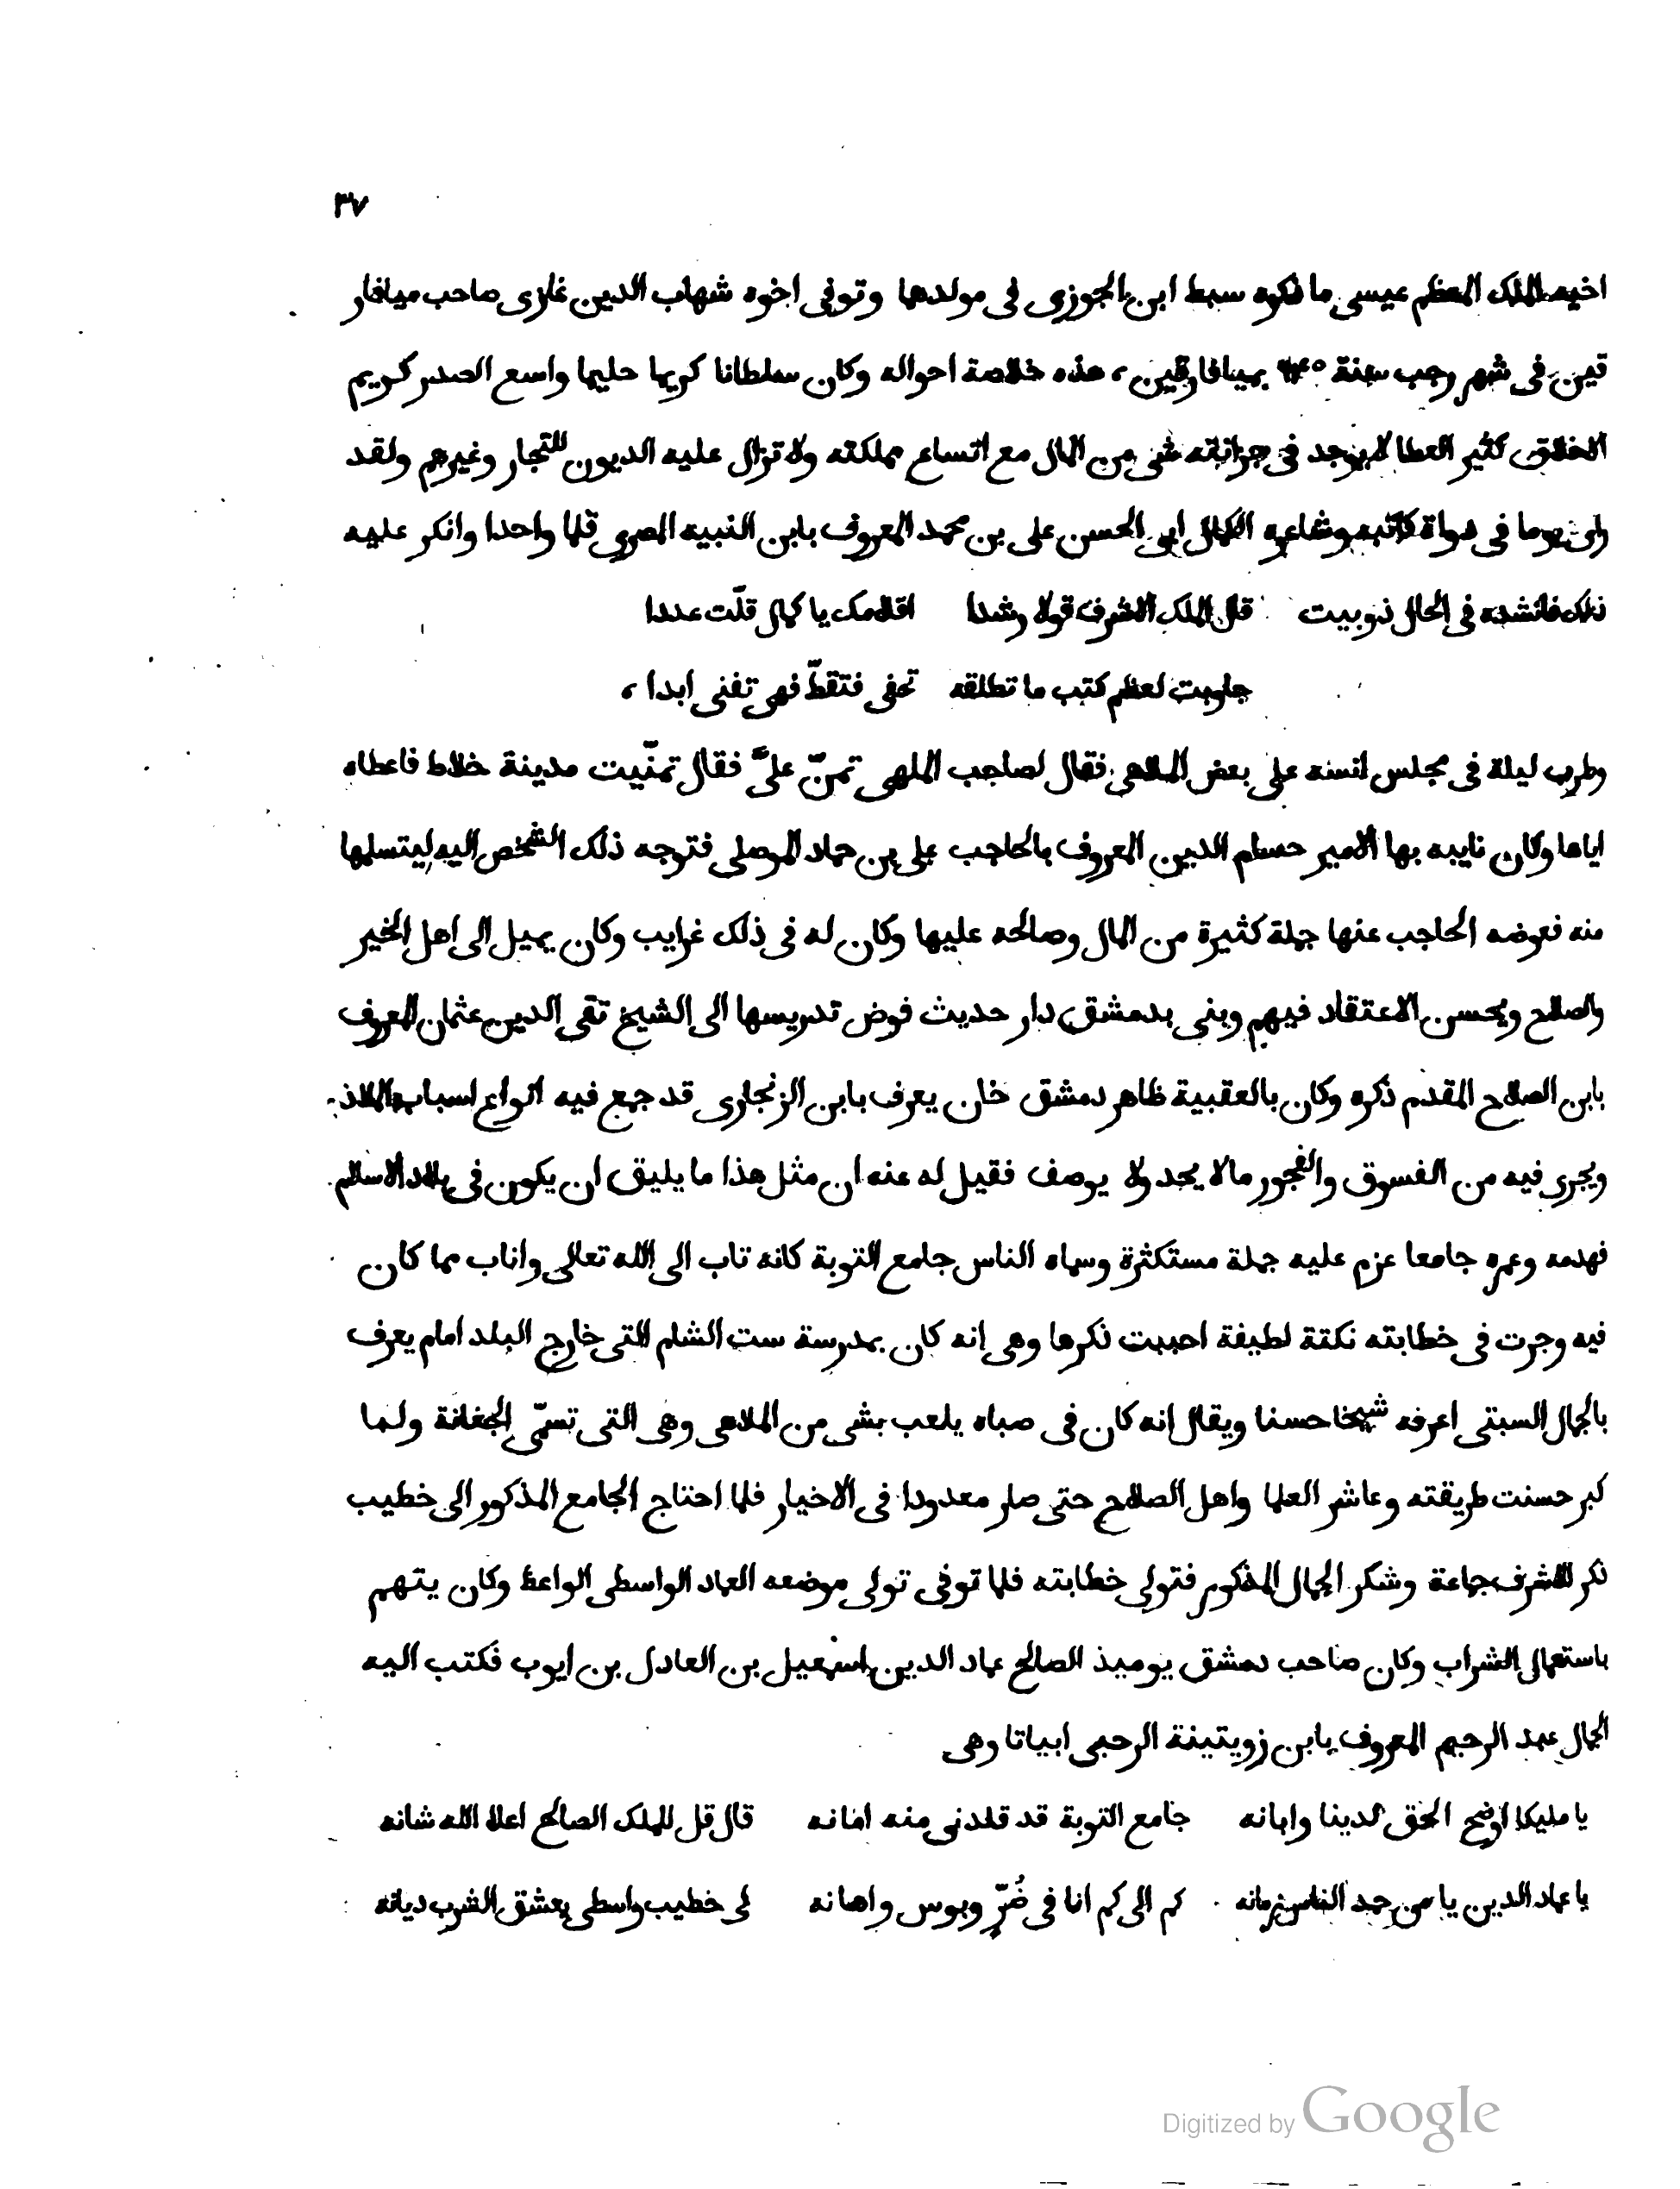 ٣٧
اخيه الملك المعظم عيسى ما ذكره سبط ابن الجوزى فى مولدهما وتوفى اخوه شهاب الدين غازى صاحب ميافار
قين فى شهر رجب سنة ٦٤٥ بميافارقين، هذه خلاصة احواله وكان سلطانا كريما حليما واسع الصدر كريم
الاخلاق كثير العطا لا يوجد فى خزانته شى من المال مع اتساع مملكته ولا تزال عليه الديون للتجار وغيرهم ولقد
راى يوما فى دواة كاتبه وشاعره الكمال ابى الحسن على بن محمد المعروف بابن النبيه المصرى قلما واحدا وانكر عليه
ذلك فانشده فى الحال ذوبيت قال الملك الاشرف قولا رشدا اقلامك يا كمال قلّت عددا
جاوبت لعظم كتب ما تطلقه تحفى فتقطّ فهى تفنى ابدا،
وطرب ليلة فى مجلس انسه على بعض الملاهى فقال لصاحب الملهى تمنّ علىّ فقال تمنّيت مدينة خلاط فاعطاه
اياها وكان نايبه بها الامير حسام الدين المعروف بالحاجب على بن حماد الموصلى فتوجه ذلك الشخص اليه ليتسلمها
منه فعوضه الحاجب عنها جملة كثيرة من المال وصالحه عليها وكان له فى ذلك غرايب وكان يميل الى اهل الخير
والصلاح ويحسن الاعتقاد فيهم وبنى بدمشق دار حديث فوض تدريسها الى الشيخ تقى الدين عثمان المعروف
بابن الصلاح المقدم ذكره وكان بالعقبية ظاهر دمشق خان يعرف بابن الزنجارى قد جمع فيه انواع اسباب الملاذ
ويجرى فيه من الفسوق والفجور مالا يحد ولا يوصف فقيل له عنه ان مثل هذا ما يليق ان يكون فى بلاد الاسلام
فهدمه وعمره جامعا عزم عليه جملة مستكثرة وسماه الناس جامع التوبة كانه تاب الى الله تعالى واناب مما كان
فيه وجرت فى خطابته نكتة لطيفة احببت ذكرها وهى انه كان بمدرسة ست الشام التى خارج البلد امام يعرف
بالجمال السبتى اعرفه شيخا حسنا ويقال انه كان فى صباه يلعب بشى من الملاهى وهى التى تسمّى الجغانة ولما
كبر حسنت طريقته وعاشر العلما واهل الصلاح حتى صار معدودا فى الاخيار فلما احتاج الجامع المذكور الى خطيب
ذكر للاشرف جماعة وشكر الجمال المذكور فتولى خطابته فلما توفى تولى موضعه العماد الواسطى الواعظ وكان يتهم
باستعمال الشراب وكان صاحب دمشق يوميذ الصالح عماد الدين اسمعيل بن العادل بن ايوب فكتب اليه
الجمال عبد الرحيم المعروف بابن زويتينة الرحبى ابياتا وهى
يا مليكا اوضح الحق لدينا وابانه جامع التوبة قد قلدنى منه امانه قال قل للملك الصالح اعلا الله شانه
يا عماد الدين يا من حمد الناس زمانه كم الى كم انا فى ضُرّ وبوس واهانه لى خطيب واسطى يعشق الشرب ديانه
Digitized by Google